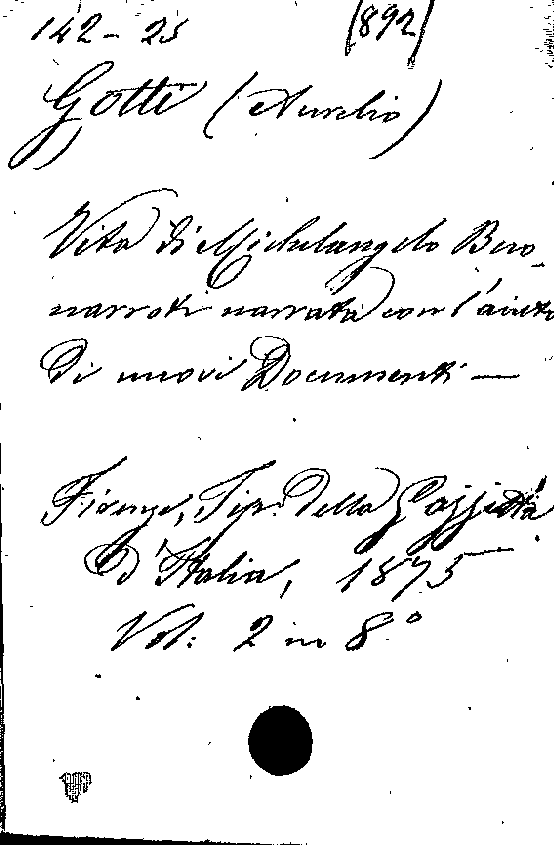 142-25 (892)
Gotti (Aurelio)
Vita di Michelangelo Buo-
narroti narrata con l'aiuto
di nuovi Documenti —
Firenze, Tip: della Gazzetta
d'Italia, 1875
Vol: 2 in 8°